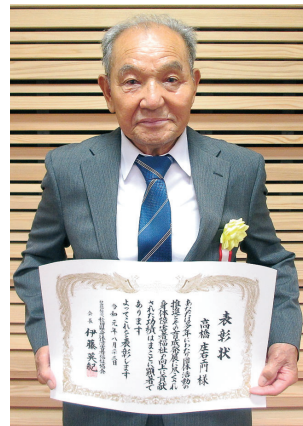 表彰状
高橋 庄右エ門 様
あなたは多年にわたり団体活動の
推進とその育成発展に尽くされ
身体障害者福祉の向上に貢献
された功績はまことに顕著で
あります
よってこれを表彰します
令和元年八月二十六日
会長 伊藤英紀